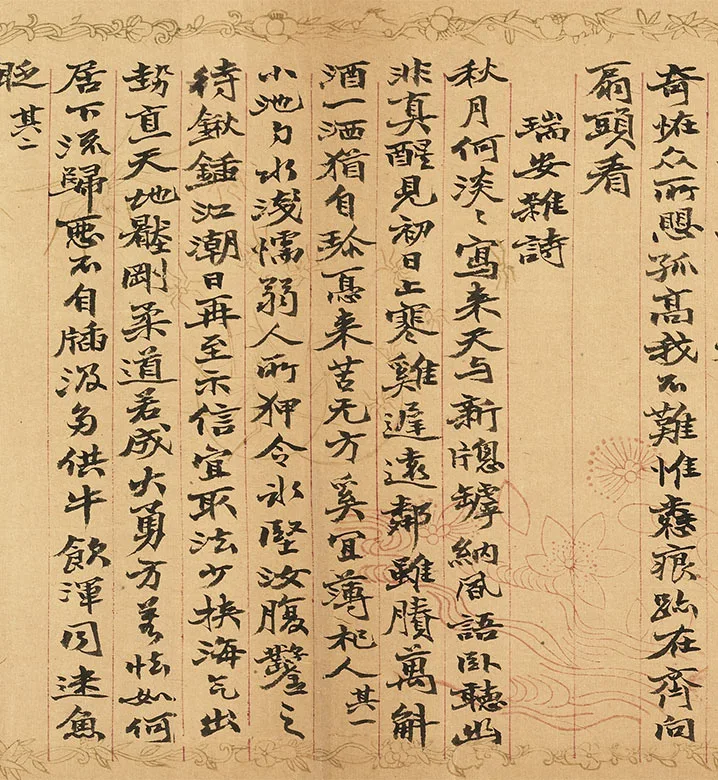 奇恠众所愳孤高我不難惟痕跡在齊向
扇頭看
瑞安雜詩
秋月何淡〻寫来天与新牕罅納風語卧聽此
非真醒見初日上寒雞遲遠鄰雖賸萬斛
酒一洒猶自珎憂来苦无方奚宜薄杞人 其一
小池勺水淺懦弱人所狎令冰堅汝腹鑿之
待鍬鍤江潮日再至示信宜取法少挾海气出
勢直天地壓剛柔道若成大勇方若怯如何
居下流歸惡不自牐汲多供牛飲渾同迷魚
眨 其二